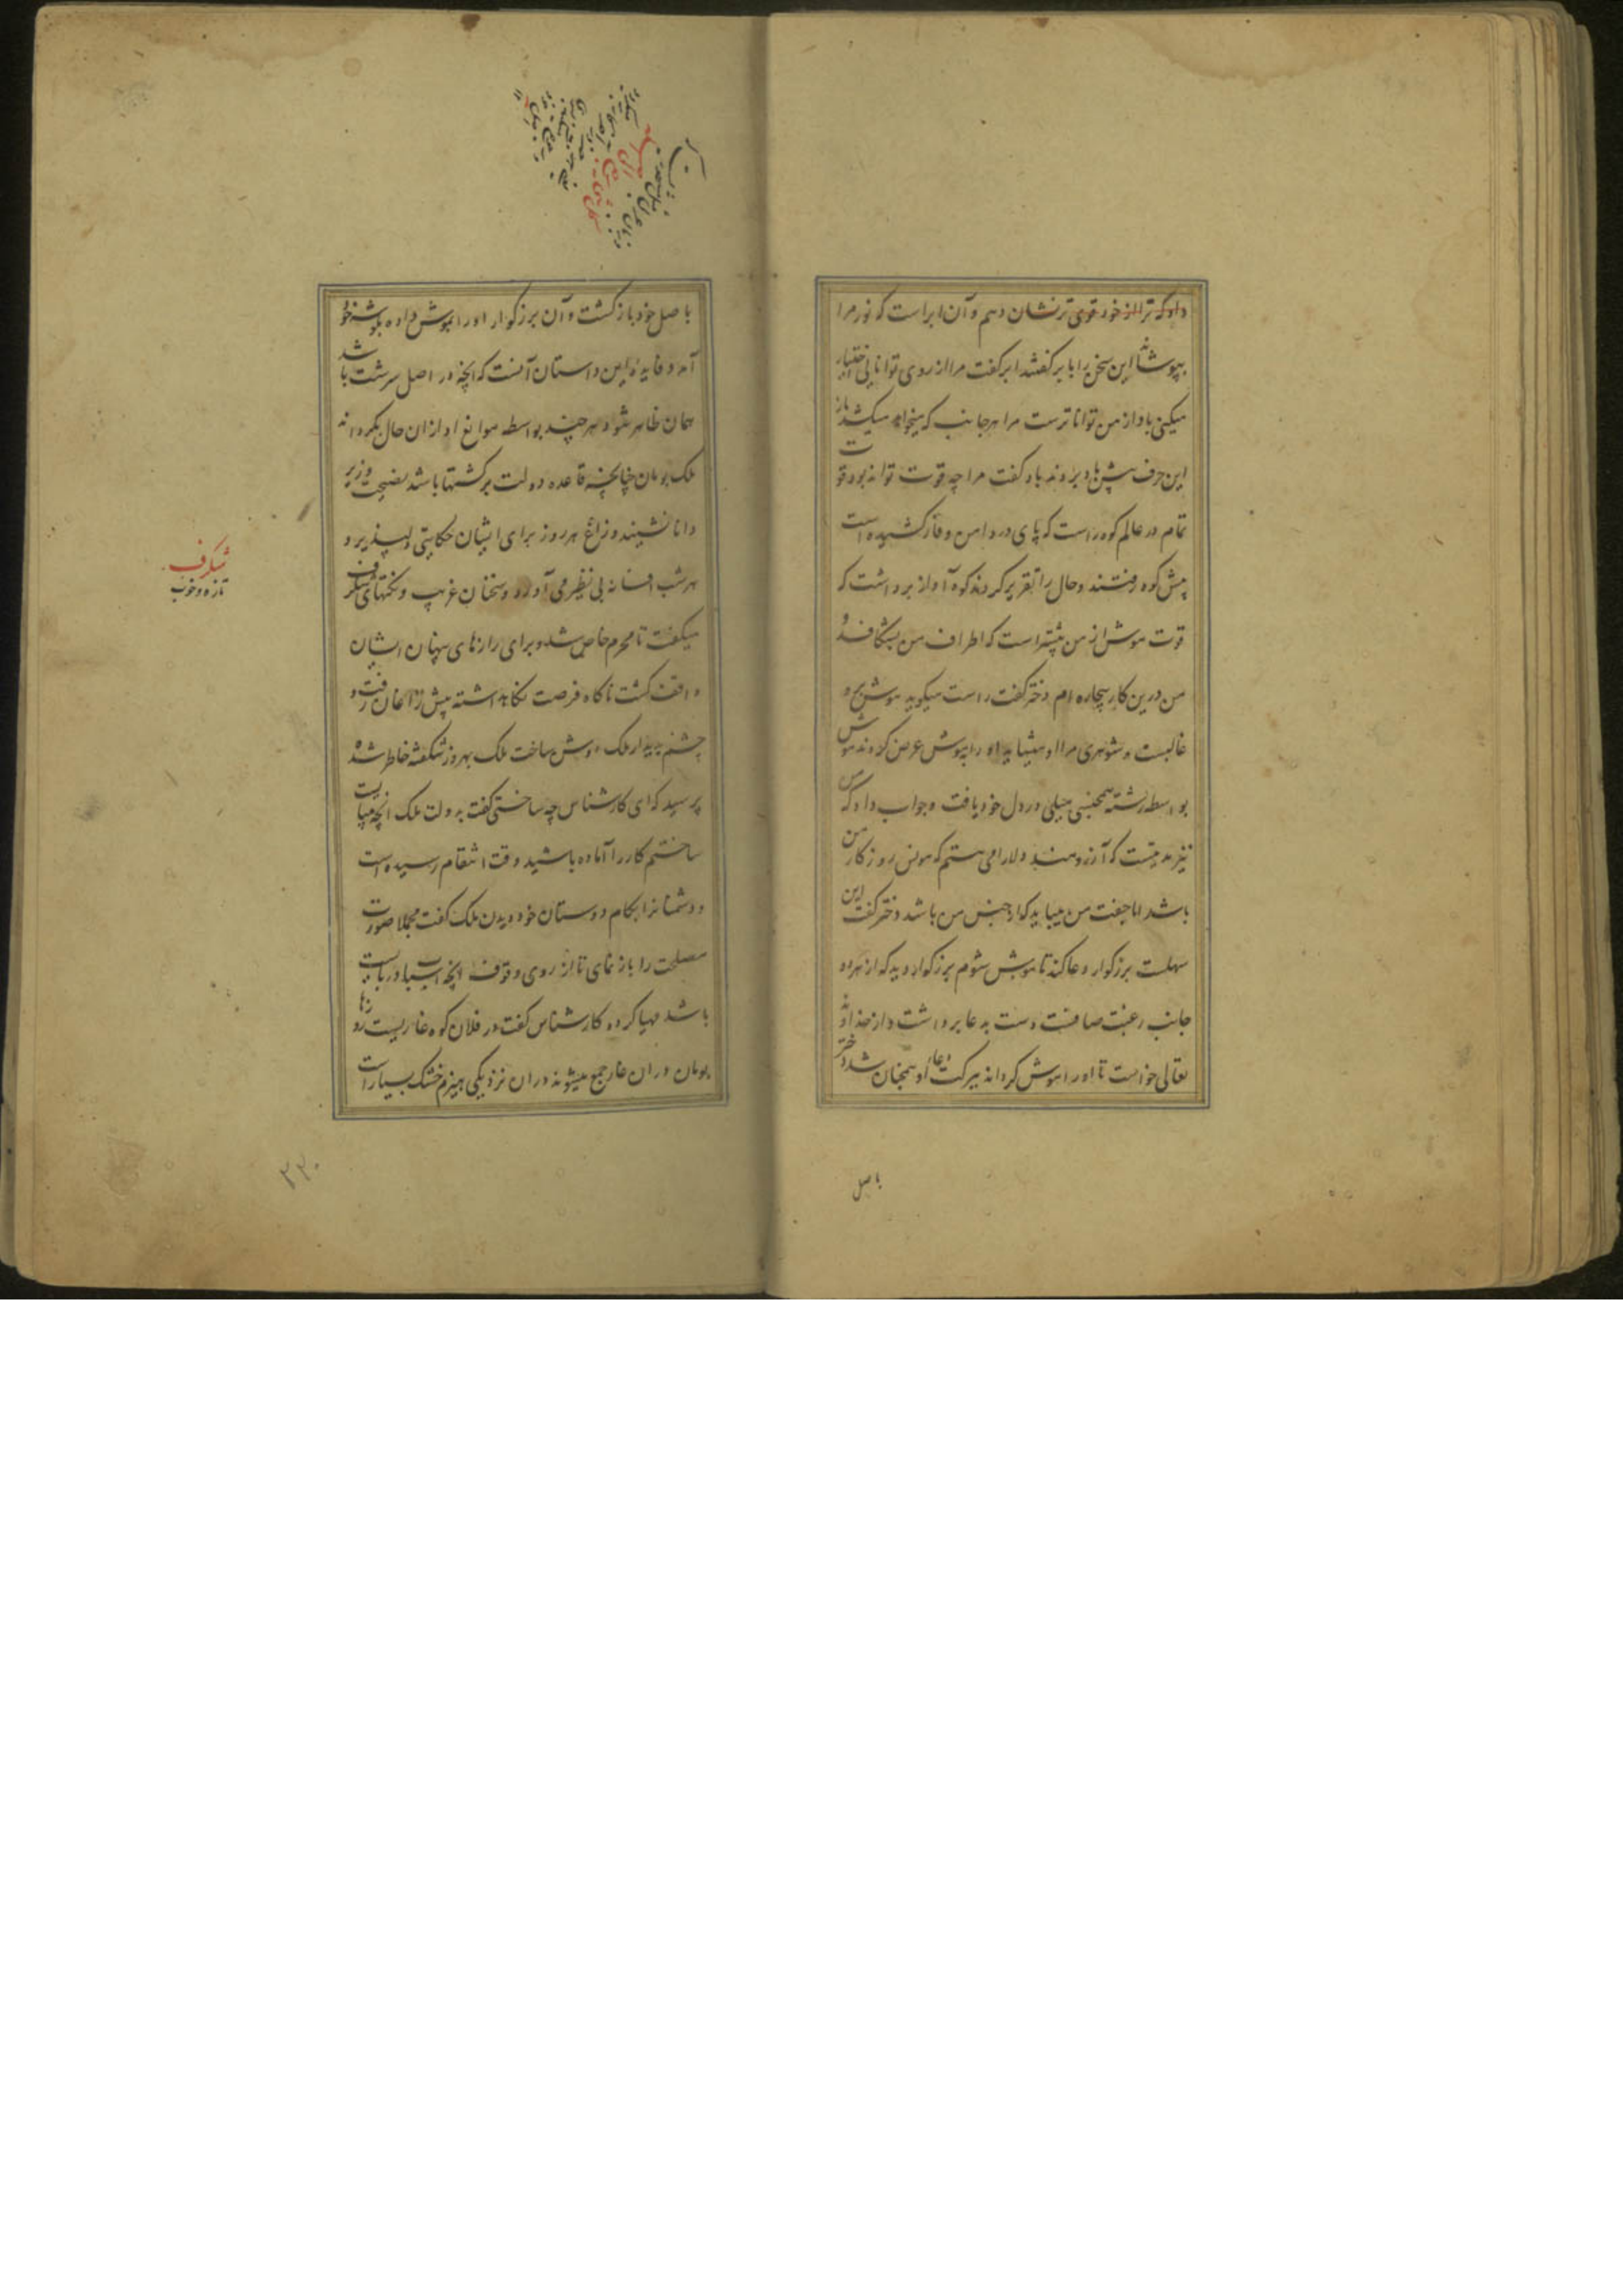 داد که ترا از خود قوی تر نشان دهم و آن ابر است که نور مرا
بپوشاند این سخن را با ابر گفتند ابر گفت مرا از روی توانایی اختیار
میکنی باد از من توانا ترست مرا هر جانب که میخواهد میکشد باز
این حرف پیش باد بردند باد گفت مرا چه قوت تواند بود قوت
تمام در عالم کوه راست که پای در دامن وقار کشیده است
پیش کوه رفتند و حال را تقریر کردند کوه آواز برداشت که
قوت موش از من بیشتر است که اطراف من بشکافد و
من درین کار بیچاره ام دختر گفت راست میکوید موش برو
غالبست و شوهری مرا او میشاید او را بموش عرض کردند موش
بواسطه رشته همجنسی میلی در دل خود یافت و جواب داد که من
نیز مدتیست که آرزومند دلارامی هستم که مونس روزکار من
باشد اما جفت من میباید که از جنس من باشد دختر گفت این
سهلست بزرکوار دعا کند تا موش شوم بزرکوار دید که از هر دو
جانب رغبت صافست دست بدعا برداشت و از خداوند
تعالی خواست تا او را موش کرداند ببرکت دعاء او همچنان شد دختر
باصل
باصل خود باز کشت و آن بزرکوار او را بموش داده بکوشه خود
آمد و فایده این داستان آنست که انچه در اصل سرشت باشد
همان ظاهر شود هر چند بواسطه موانع او از ان حال بگرداند
ملک بومان چنانچه قاعده دولت برکشتها باشد نصیحت وزیر
دانا نشنید و زاغ هر روز برای ایشان حکایتی دلپذیر و
هر شب افسانه بی نظیر می آورد و سخنان غریب و نکتهای شکرف
میکفت تا محرم خاص شد و برای رازهای پنهان ایشان
واقف کشت ناکاه فرصت نکاه داشته پیش زاغان رفت و
چشم بدیدار ملک روشن ساخت ملک بهروز شکفته خاطر شده
پرسید که ای کارشناس چه ساختی گفت بدولت ملک انچه میبایست
ساختم کار را آماده باشید وقت انتقام رسیده است
و دشمنانرا بکام دوستان خود دیدن ملک گفت مجملا صورت
مصلحت را باز نمای تا از روی وقوف انچه اسباب دربایست
باشد مهیا کرده کارشناس گفت در فلان کوه غاریست روزها
بومان در ان غار جمع میشوند در ان نزدیکی هیزم خشک بسیار است
شکرف
تازه و خوب
۲۲۰